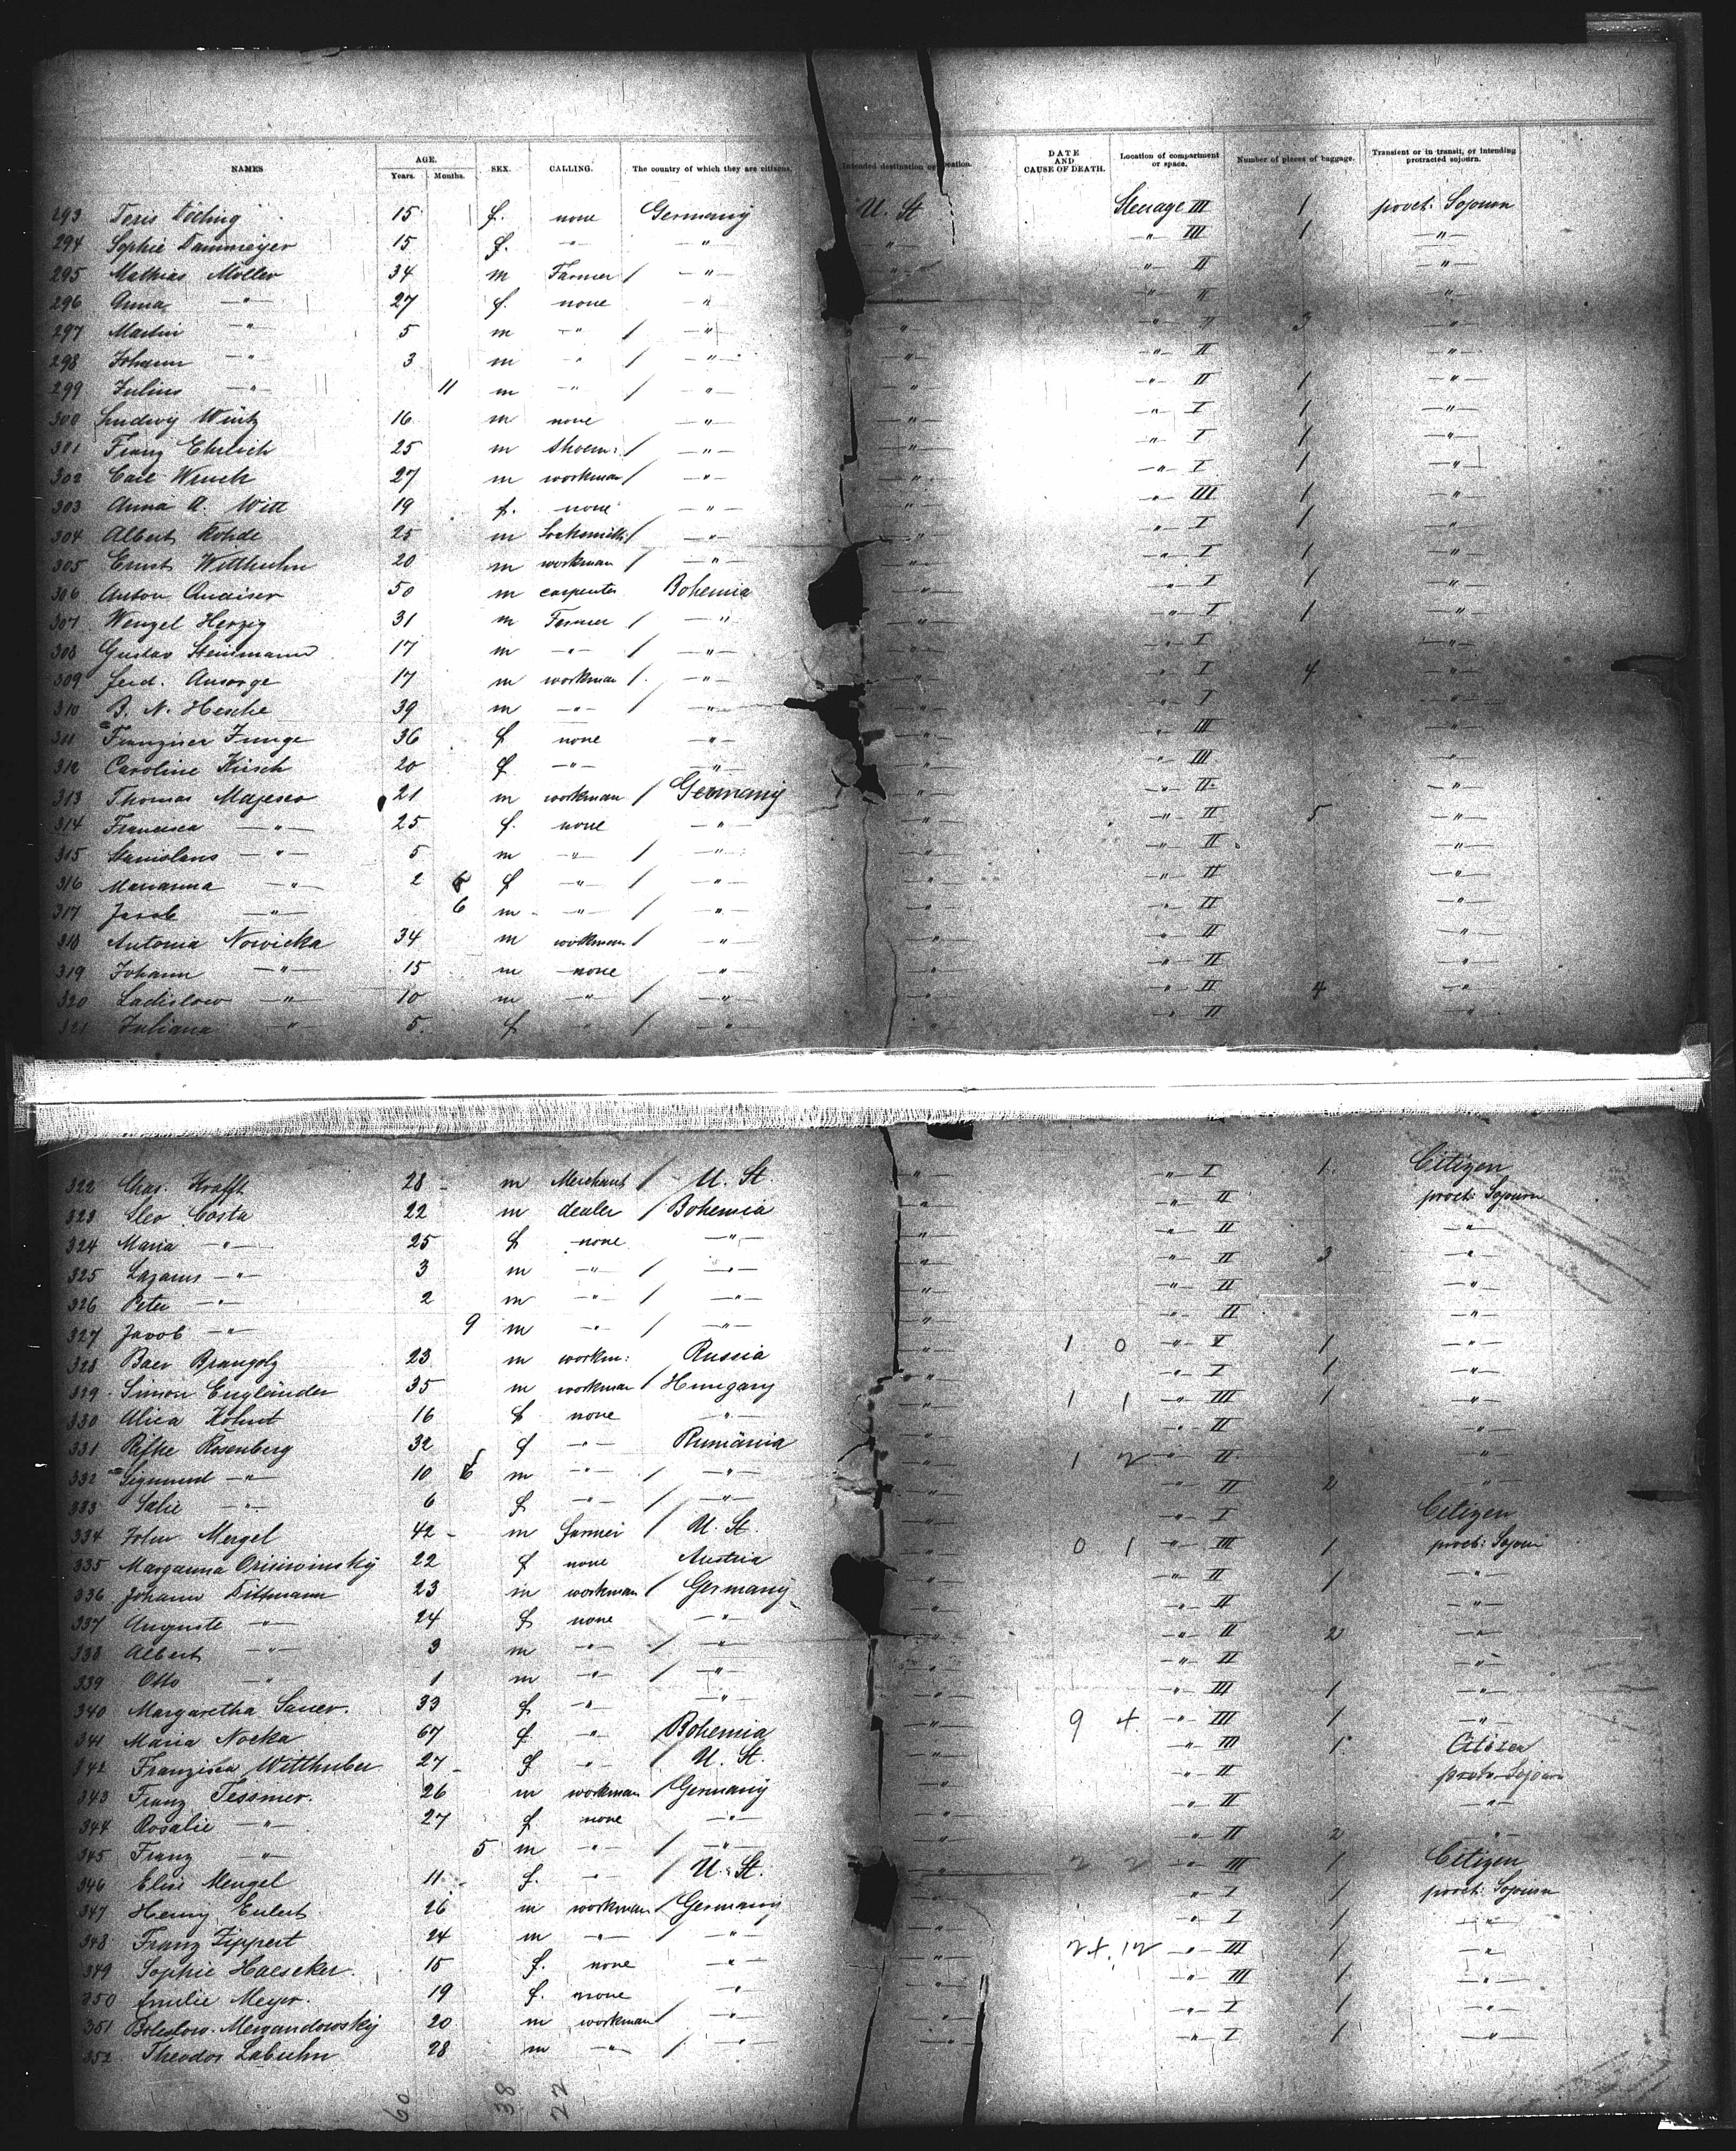 NAMES AGE. Years. Months. SEX. CALLING. The country of which they are citizens. Intended destination or location. DATE AND CAUSE OF DEATH. Location of compartment or space. Number of pieces of baggage. Transient or in transit, or intending protracted sojourn.
293 15 f. none Germany U. St Steerage III 1 prot: Sojourn
294 Sophie Dammeyer 15 f. " " " " III 1 "
295 Mathias Möller 34 m Farmer / " " " II "
296 Anna " 27 f. none " " " II "
297 Martin " 5 m " / " " " II 3 "
298 Johann " 3 m " / " " " II "
299 Julius " 11 m " / " " " II 1 "
300 Ludwig 16 m none " " " I 1 "
301 Franz Ehrlich 25 m shoem: / " " " I 1 "
302 Carl 27 m workman / " " " I 1 "
303 Anna A. Witt 19 f. none " " " III 1 "
304 Albert Rohde 25 m Locksmith / " " " I 1 "
305 Ernst Witthuhn 20 m workman / " " " I 1 "
306 Anton 50 m carpenter Bohemia " " I 1 "
307 Wenzel Herzig 31 m Farmer / " " " I 1 "
308 Gustav 17 m " / " " " I "
309 Ferd. Ansorge 17 m workman / " " " I 4 "
310 39 m " / " " " I "
311 Junge 36 f none " " " III "
312 Caroline Kirsch 20 f " " " " III "
313 Thomas 21 m workman / Germany " " II "
314 Francisca " 25 f. none " " " II 5 "
315 Stanislaus " 5 m " / " " " II "
316 Marianna " 2 f " / " " " II "
317 Jacob " 6 m " / " " " II "
318 Antonia Nowicka 34 m workman / " " " II "
319 Johann " 15 m none " " " II "
320 Ladislow " 10 m " / " " " II 4 "
321 Juliana " 5 f " / " " " II "
322 Chas. Krafft 28 m Merchant / U. St. " " I 1 Citizen
323 Costa 22 m dealer / Bohemia " " II prot: Sojourn
324 Maria " 25 f none " " " II "
325 Lazarus " 3 m " / " " " II 3 "
326 Peter " 2 m " / " " " II "
327 Jacob " 9 m " / " " " II "
328 23 m workm: Russia " 1 0 " I 1 "
329 Simon Engländer 35 m workman / Hungary " " I 1 "
330 16 f none " " 1 1 " III 1 "
331 Rifke Rosenberg 32 f " Rumänia " " II "
332 Sigmund " 10 m " / " " 1 2 " II "
333 Salie " 6 f " / " " " II 2 "
334 John Mergel 42 m farmer / U. St. " " I Citizen
335 22 f none Austria " 0 1 " III 1 prot: Sojourn
336 Johann Dittmann 23 m workman / Germany " " II 1 "
337 Auguste " 24 f none " " " II "
338 Albert " 3 m " / " " " II 2 "
339 Otto " 1 m " / " " " II "
340 Margaretha Sauer. 33 f " " " " III 1 "
341 Maria 67 f. " Bohemia " 9 4 " III 1 "
342 Franziska Witthuber 27 f " U. St. " " III 1 Citizen
343 Franz Tessmer. 26 m workman / Germany " " II prot: Sojourn
344 Rosalie " 27 f none " " " II "
345 Franz " 5 m " / " " " II 2 "
346 Elise Mengel 11 f. " / U. St. " 2 2 " III 1 Citizen
347 Henry 26 m workman / Germany " " I 1 prot: Sojourn
348 Franz Zippert 24 m " / " " " I 1 "
349 Sophie Haeseker. 15 f. none " " 24 12 " III 1 "
350 Emilie Meyer. 19 f. none " " " III 1 "
351 20 m workman / " " " I 1 "
352 Theodor Labuhn 28 m " / " " " I 1 "
60 38 22